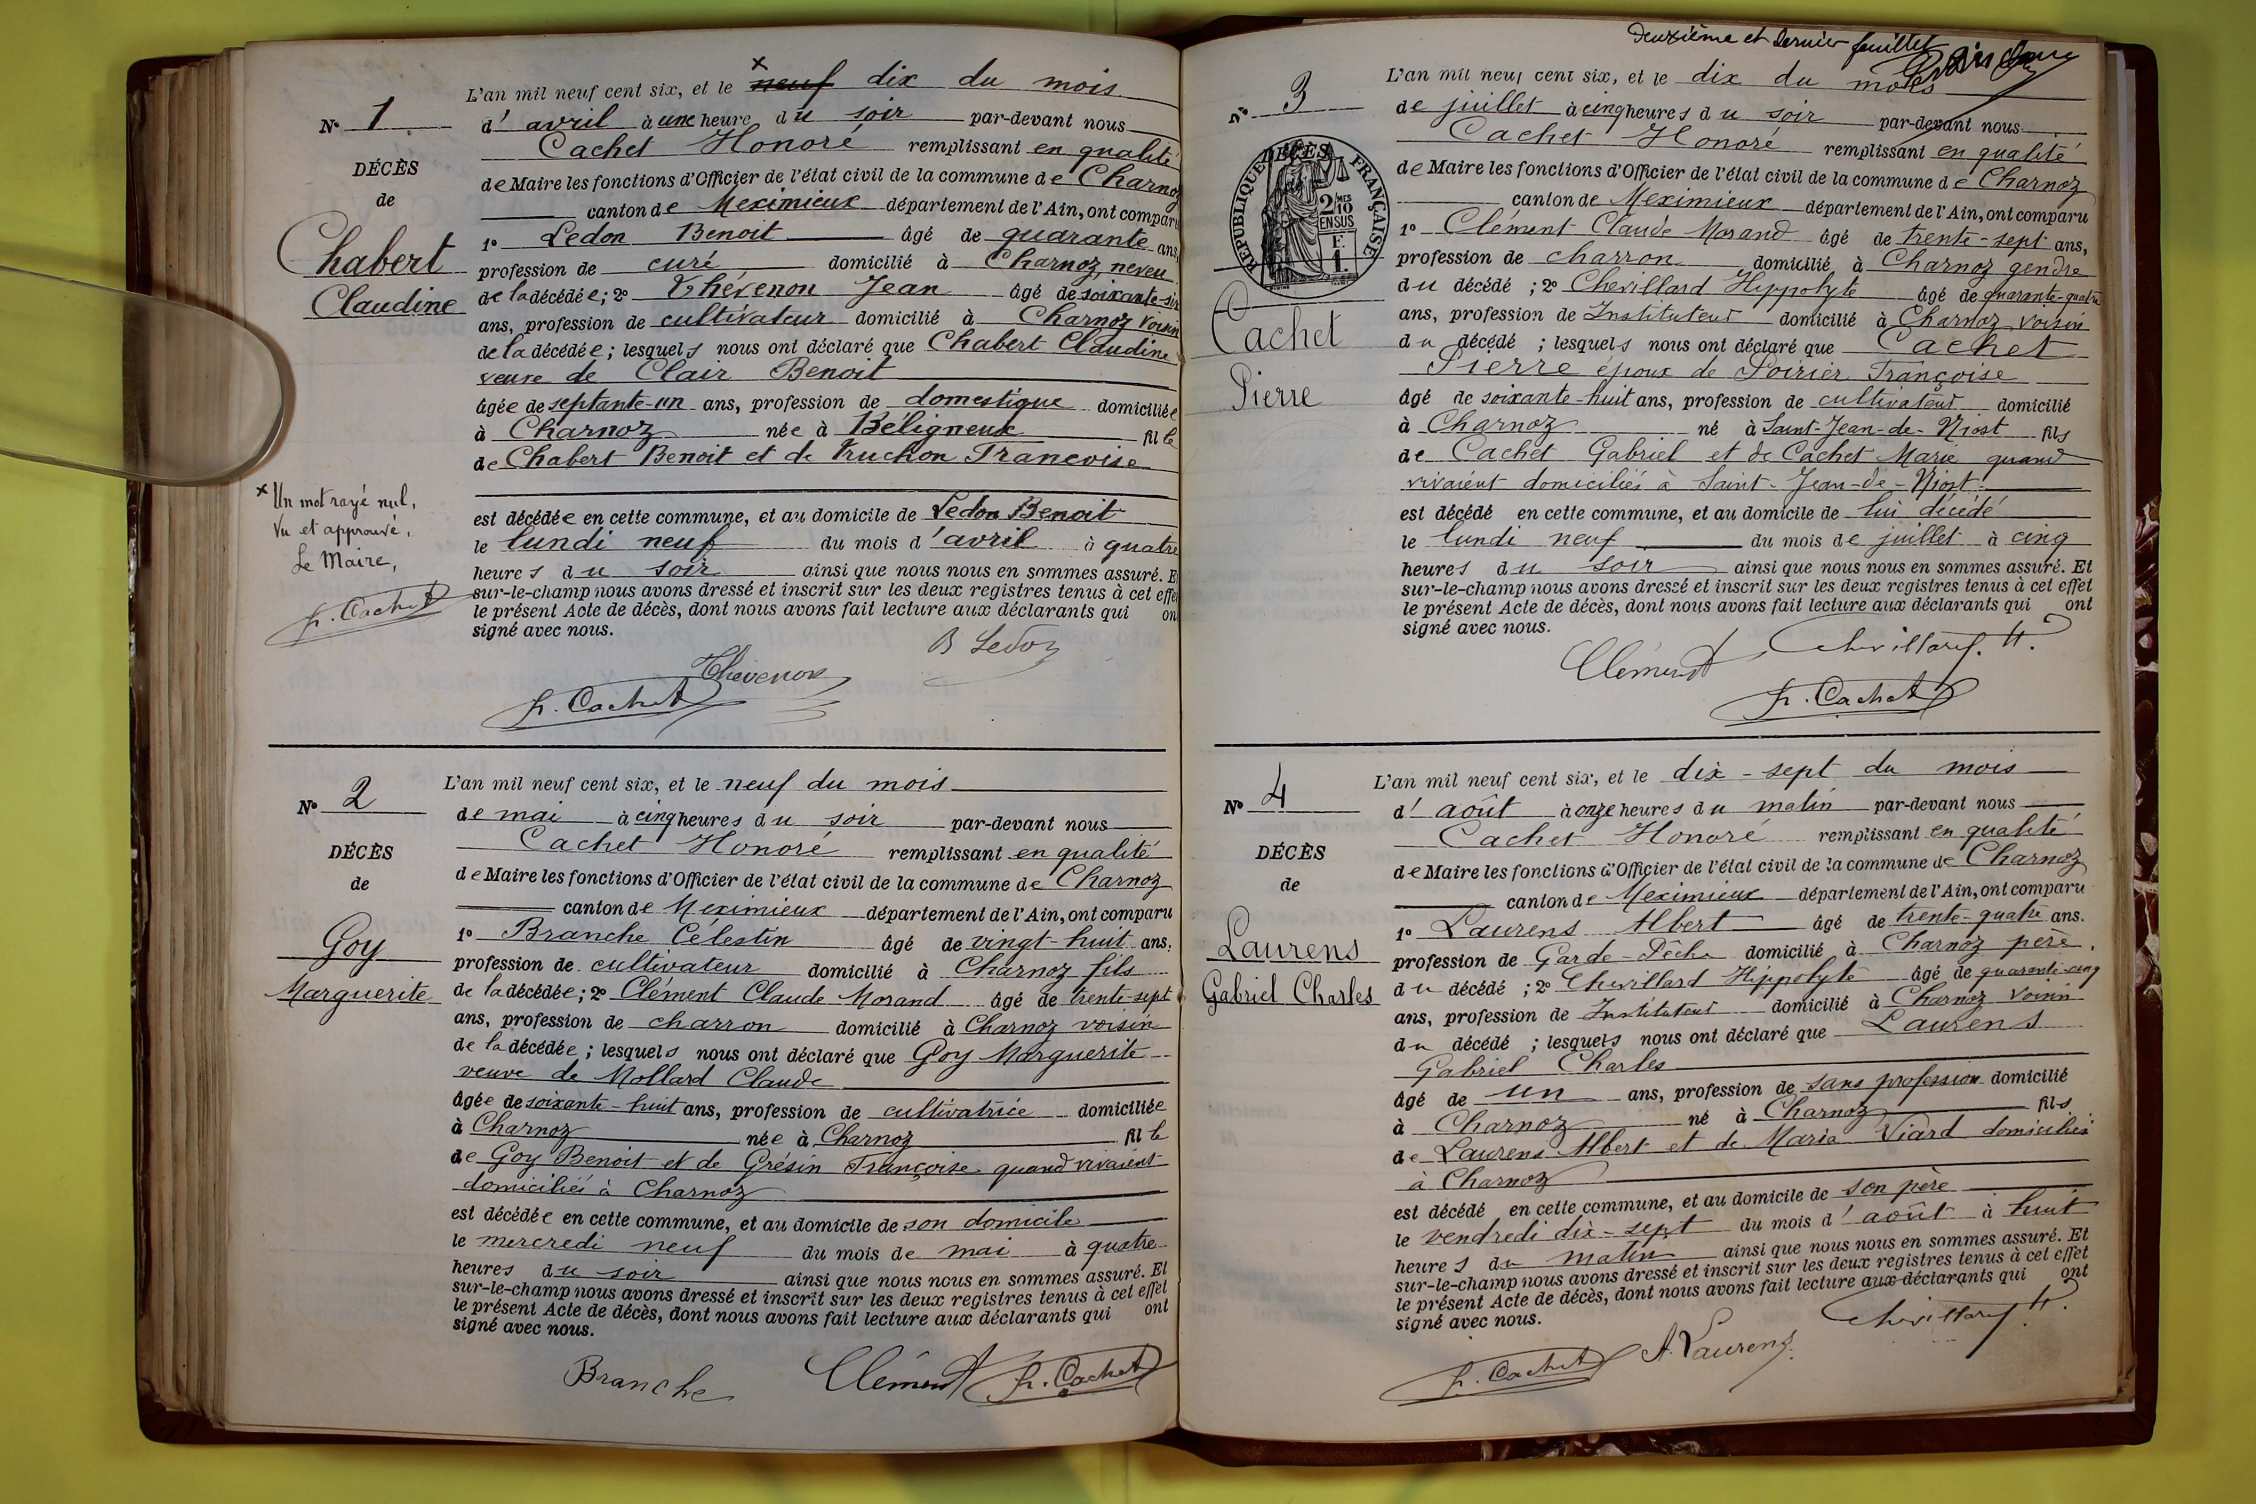 N° 1
DÉCÈS
de
Chabert
Claudine
L'an mil neuf cent six, et le neuf dix du mois
d'avril à une heure du soir par-devant nous
Cachet Honoré remplissant en qualité
de Maire les fonctions d'Officier de l'état civil de la commune de Charnoz
canton de Meximieux département de l'Ain, ont comparu
1° Ledon Benoit âgé de quarante ans,
profession de curé domicilié à Charnoz, neveu
de la décédée; 2° Thévenon Jean âgé de soixante-six
ans, profession de cultivateur domicilié à Charnoz voisin
de la décédée; lesquels nous ont déclaré que Chabert Claudine
veuve de Clair Benoit
âgée de septante-un ans, profession de domestique domiciliée
à Charnoz née à Béligneux fille
de Chabert Benoit et de Truchon Francoise
est décédée en cette commune, et au domicile de Ledon Benoit
le lundi neuf du mois d'avril à quatre
heures du soir ainsi que nous nous en sommes assuré. Et
sur-le-champ nous avons dressé et inscrit sur les deux registres tenus à cet effet
le présent Acte de décès, dont nous avons fait lecture aux déclarants qui ont
signé avec nous.
x Un mot rayé nul,
Vu et approuvé,
Le Maire,
h. Cachet
B Ledon
Thévenon
h. Cachet
N° 2
DÉCÈS
de
Goy
Marguerite
L'an mil neuf cent six, et le neuf du mois
de mai à cinq heures du soir par-devant nous
Cachet Honoré remplissant en qualité
de Maire les fonctions d'Officier de l'état civil de la commune de Charnoz
canton de Meximieux département de l'Ain, ont comparu
1° Branche Célestin âgé de vingt-huit ans,
profession de cultivateur domicilié à Charnoz fils
de la décédée; 2° Clément Claude Morand âgé de trente-sept
ans, profession de charron domicilié à Charnoz voisin
de la décédée; lesquels nous ont déclaré que Goy Marguerite
veuve de Mollard Claude
âgée de soixante-huit ans, profession de cultivatrice domiciliée
à Charnoz née à Charnoz fille
de Goy Benoit et de Grésin Françoise quand vivaient
domiciliés à Charnoz
est décédée en cette commune, et au domicile de son domicile
le mercredi neuf du mois de mai à quatre
heures du soir ainsi que nous nous en sommes assuré. Et
sur-le-champ nous avons dressé et inscrit sur les deux registres tenus à cet effet
le présent Acte de décès, dont nous avons fait lecture aux déclarants qui ont
signé avec nous.
Branche Clément h. Cachet
deuxième et dernier feuillet
N° 3
RÉPUBLIQUE FRANÇAISE
DÉCÈS
2/10 MES EN SUS
F. 1.
Cachet
Pierre
L'an mil neuf cent six, et le dix du mois
de juillet à cinq heures du soir par-devant nous
Cachet Honoré remplissant en qualité
de Maire les fonctions d'Officier de l'état civil de la commune de Charnoz
canton de Meximieux département de l'Ain, ont comparu
1° Clément Claude Morand âgé de trente-sept ans,
profession de charron domicilié à Charnoz gendre
du décédé; 2° Chevillard Hippolyte âgé de quarante-quatre
ans, profession de Instituteur domicilié à Charnoz voisin
du décédé; lesquels nous ont déclaré que Cachet
Pierre époux de Poirier Françoise
âgé de soixante-huit ans, profession de cultivateur domicilié
à Charnoz né à Saint-Jean-de-Niost fils
de Cachet Gabriel et de Cachet Marie quand
vivaient domiciliés à Saint-Jean-de-Niost
est décédé en cette commune, et au domicile de lui décédé
le lundi neuf du mois de juillet à cinq
heures du soir ainsi que nous nous en sommes assuré. Et
sur-le-champ nous avons dressé et inscrit sur les deux registres tenus à cet effet
le présent Acte de décès, dont nous avons fait lecture aux déclarants qui ont
signé avec nous.
Clément Chevillard. H.
h. Cachet
N° 4
DÉCÈS
de
Laurens
Gabriel Charles
L'an mil neuf cent six, et le dix-sept du mois
d'août à onze heures du matin par-devant nous
Cachet Honoré remplissant en qualité
de Maire les fonctions d'Officier de l'état civil de la commune de Charnoz
canton de Meximieux département de l'Ain, ont comparu
1° Laurens Albert âgé de trente-quatre ans.
profession de Garde-Pêche domicilié à Charnoz père
du décédé; 2° Chevillard Hippolyte âgé de quarante-cinq
ans, profession de Instituteur domicilié à Charnoz voisin
du décédé; lesquels nous ont déclaré que Laurens
Gabriel Charles
âgé de un ans, profession de sans profession domicilié
à Charnoz né à Charnoz fils
de Laurens Albert et de Maria Viard domiciliés
à Charnoz
est décédé en cette commune, et au domicile de son père
le vendredi dix-sept du mois d'août à huit
heures du matin ainsi que nous nous en sommes assuré. Et
sur-le-champ nous avons dressé et inscrit sur les deux registres tenus à cet effet
le présent Acte de décès, dont nous avons fait lecture aux déclarants qui ont
signé avec nous.
h. Cachet A. Laurens Chevillard H.